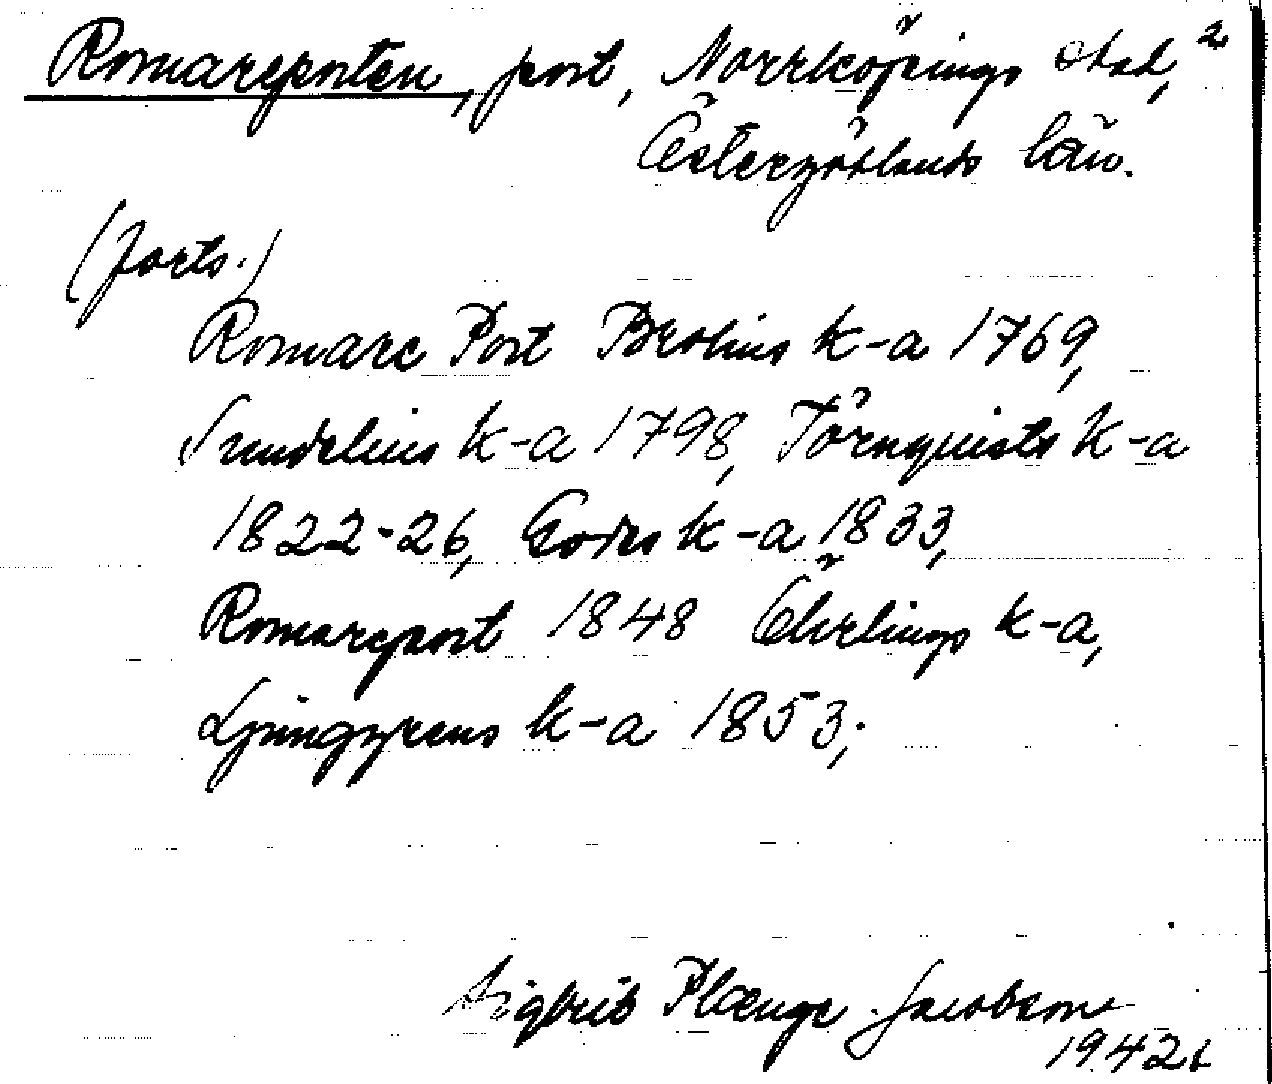 Romareposten, post, Norrköpings stad, 2
Östergötlands län.
(forts.)
Romare Post Brolins k-a 1769,
Sundelius k-a 1798, Törnquists k-a
1822-26, k-a 1833,
Romarepost 1848 Öhrlings k-a,
Ljunggrens k-a 1853;
Sigbrit Plænge Jacobson
1942